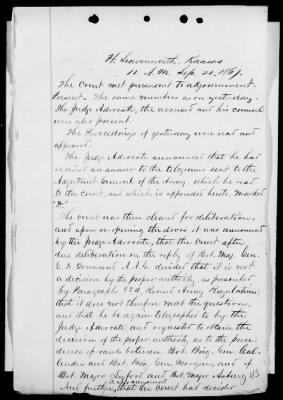 Ft. Leavenworth, Kansas
10 A.M. Sep. 20, 1867.
The Court met pursuant to adjournment.
Present. The same members as on yesterday.
The Judge Advocate, the accused and his counsel
were also present.
The Proceedings of yesterday were read and
approved.
The Judge Advocate announced that he had
received an answer to the telegram sent to the
Adjutant General of the Army, which he read
to the court, and which is appended hereto, Marked
The court was then cleared for deliberation,
and upon re-opening the doors it was announced
by the Judge Advocate, that the Court after
due deliberation on the reply of Bvt. Maj. Gen.
E. D. Townsend A.A.G. decided that it is not
a decision by the proper authority, as prescribed
by Paragraph Revised Army Regulations,
that it does not therefore meet the question,
and that he be again telegraphed to by the
Judge Advocate and requested to obtain the
decision of the proper authority, as to the prece-
dence of rank between Bvt. Brig. Gen. Cal-
lender and Bvt. Brig. Gen. Morgan, and of
Bvt. Major Lyford and Bvt. Major Asbury
it was announced
And further, that the Court had decided